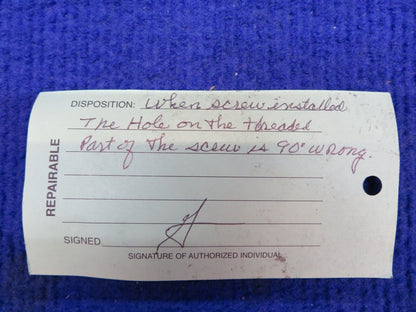 DISPOSITION: When screw installed
The Hole on the threaded
Part of The screw is 90° wrong.
REPAIRABLE
SIGNED
SIGNATURE OF AUTHORIZED INDIVIDUAL